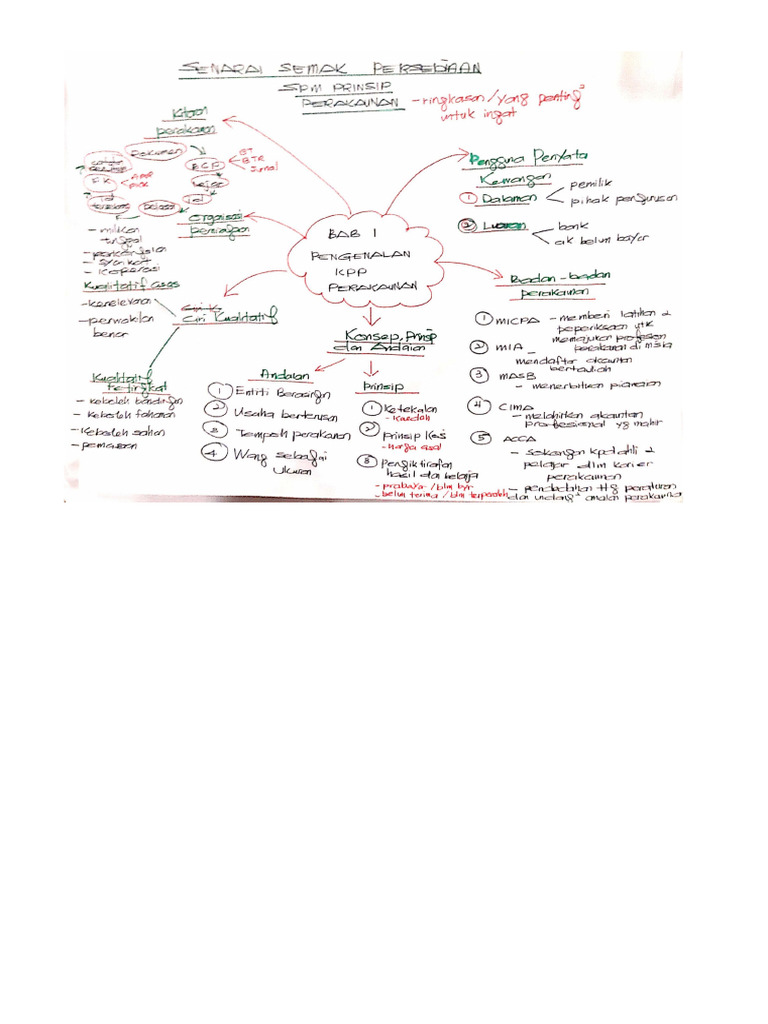 SENARAI SEMAK PERSEDIAAN
SPM PRINSIP
PERAKAUNAN
- ringkasan / yang penting²
untuk ingat
Kitaran
perakaunan
Dokumen
BCP
BT
BTR
Jurnal
Lejar
PK
Organisasi
perniagaan
- milikan
tunggal
- perkongsian
- syarikat
- koperasi
BAB 1
PENGENALAN
KPP
PERAKAUNAN
Pengguna Penyata
Kewangan
① Dalaman
pemilik
pihak pengurusan
② Luaran
bank
ak belum bayar
Badan-badan
perakaunan
① MICPA - memberi latihan &
peperiksaan utk
memajukan profesion
perakaunan di m'sia
② MIA -
mendaftar akauntan
bertauliah
③ MASB
- menerbitkan piawaian
④ CIMA
- melahirkan akauntan
professional yg mahir
⑤ ACCA
- sokongan kpd ahli &
pelajar dlm karier
perakaunan
- pendedahan thg peraturan
dan undang² amalan perakaunan
Ciri Kualitatif
Kualitatif asas
- kerelevanan
- perwakilan
benar
Kualitatif
tertingkat
- keboleh bandingan
- keboleh fahaman
- keboleh sahan
- pemasaan
Konsep, Prinsip
dan Andaian
Andaian
① Entiti Berasingan
② Usaha berterusan
③ Tempoh perakaunan
④ Wang sebagai
ukuran
Prinsip
① Ketekalan
- kaedah
② Prinsip Kos
- harga asal
③ Pengiktirafan
hasil dan belanja
- prabayar / blm byr
- belum terima / blm terperoleh